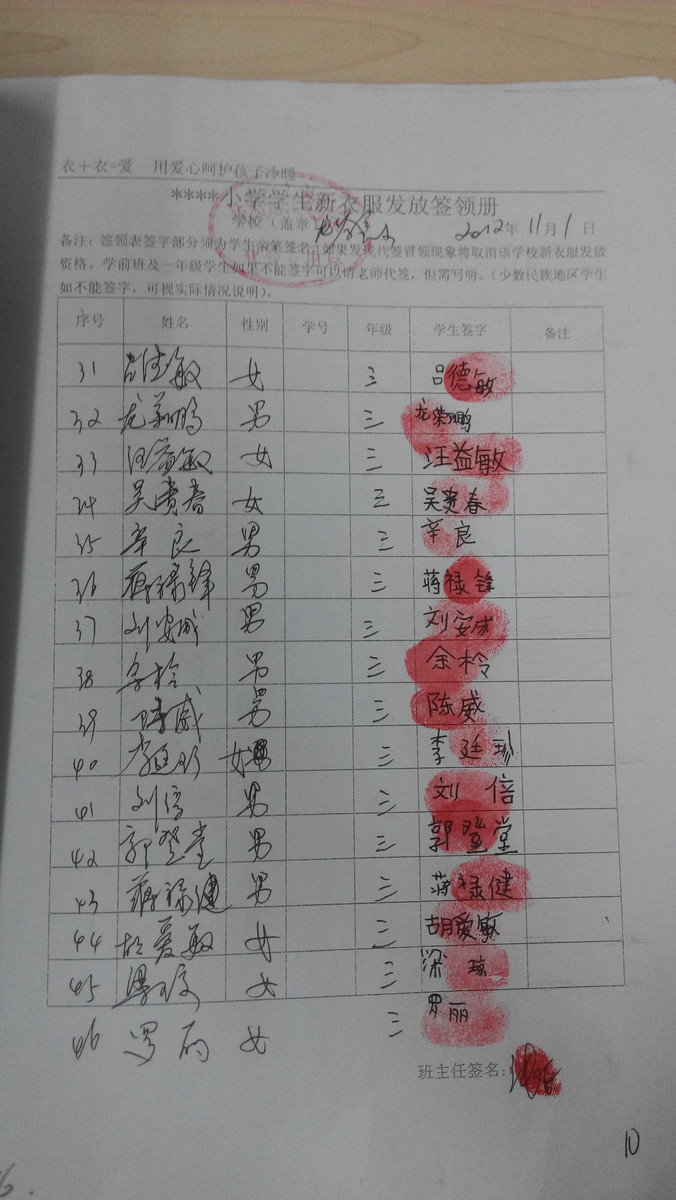 衣+衣=爱 用爱心呵护孩子冷暖
****小学学生新衣服发放签领册
学校（盖章） 2012年11月1日
备注：签领表签字部分须为学生亲笔签名，如果发现代签冒领现象将取消该学校新衣服发放
资格。学前班及一年级学生如果不能签字可以请老师代签，但需写明。（少数民族地区学生
如不能签字，可视实际情况说明）。
序号 姓名 性别 学号 年级 学生签字 备注
31 吕德敏 女 三 吕德敏
32 龙荣鹏 男 三 龙荣鹏
33 汪益敏 女 三 汪益敏
34 吴贵春 女 三 吴贵春
35 辛良 男 三 辛良
36 蒋禄锋 男 三 蒋禄锋
37 刘安成 男 三 刘安成
38 余柃 男 三 余柃
39 陈威 男 三 陈威
40 李廷珍 女 三 李廷珍
41 刘倍 男 三 刘倍
42 郭登堂 男 三 郭登堂
43 蒋禄健 男 三 蒋禄健
44 胡爱敏 女 三 胡爱敏
45 梁琼 女 三 梁琼
46 罗丽 女 三 罗丽
班主任签名：
10